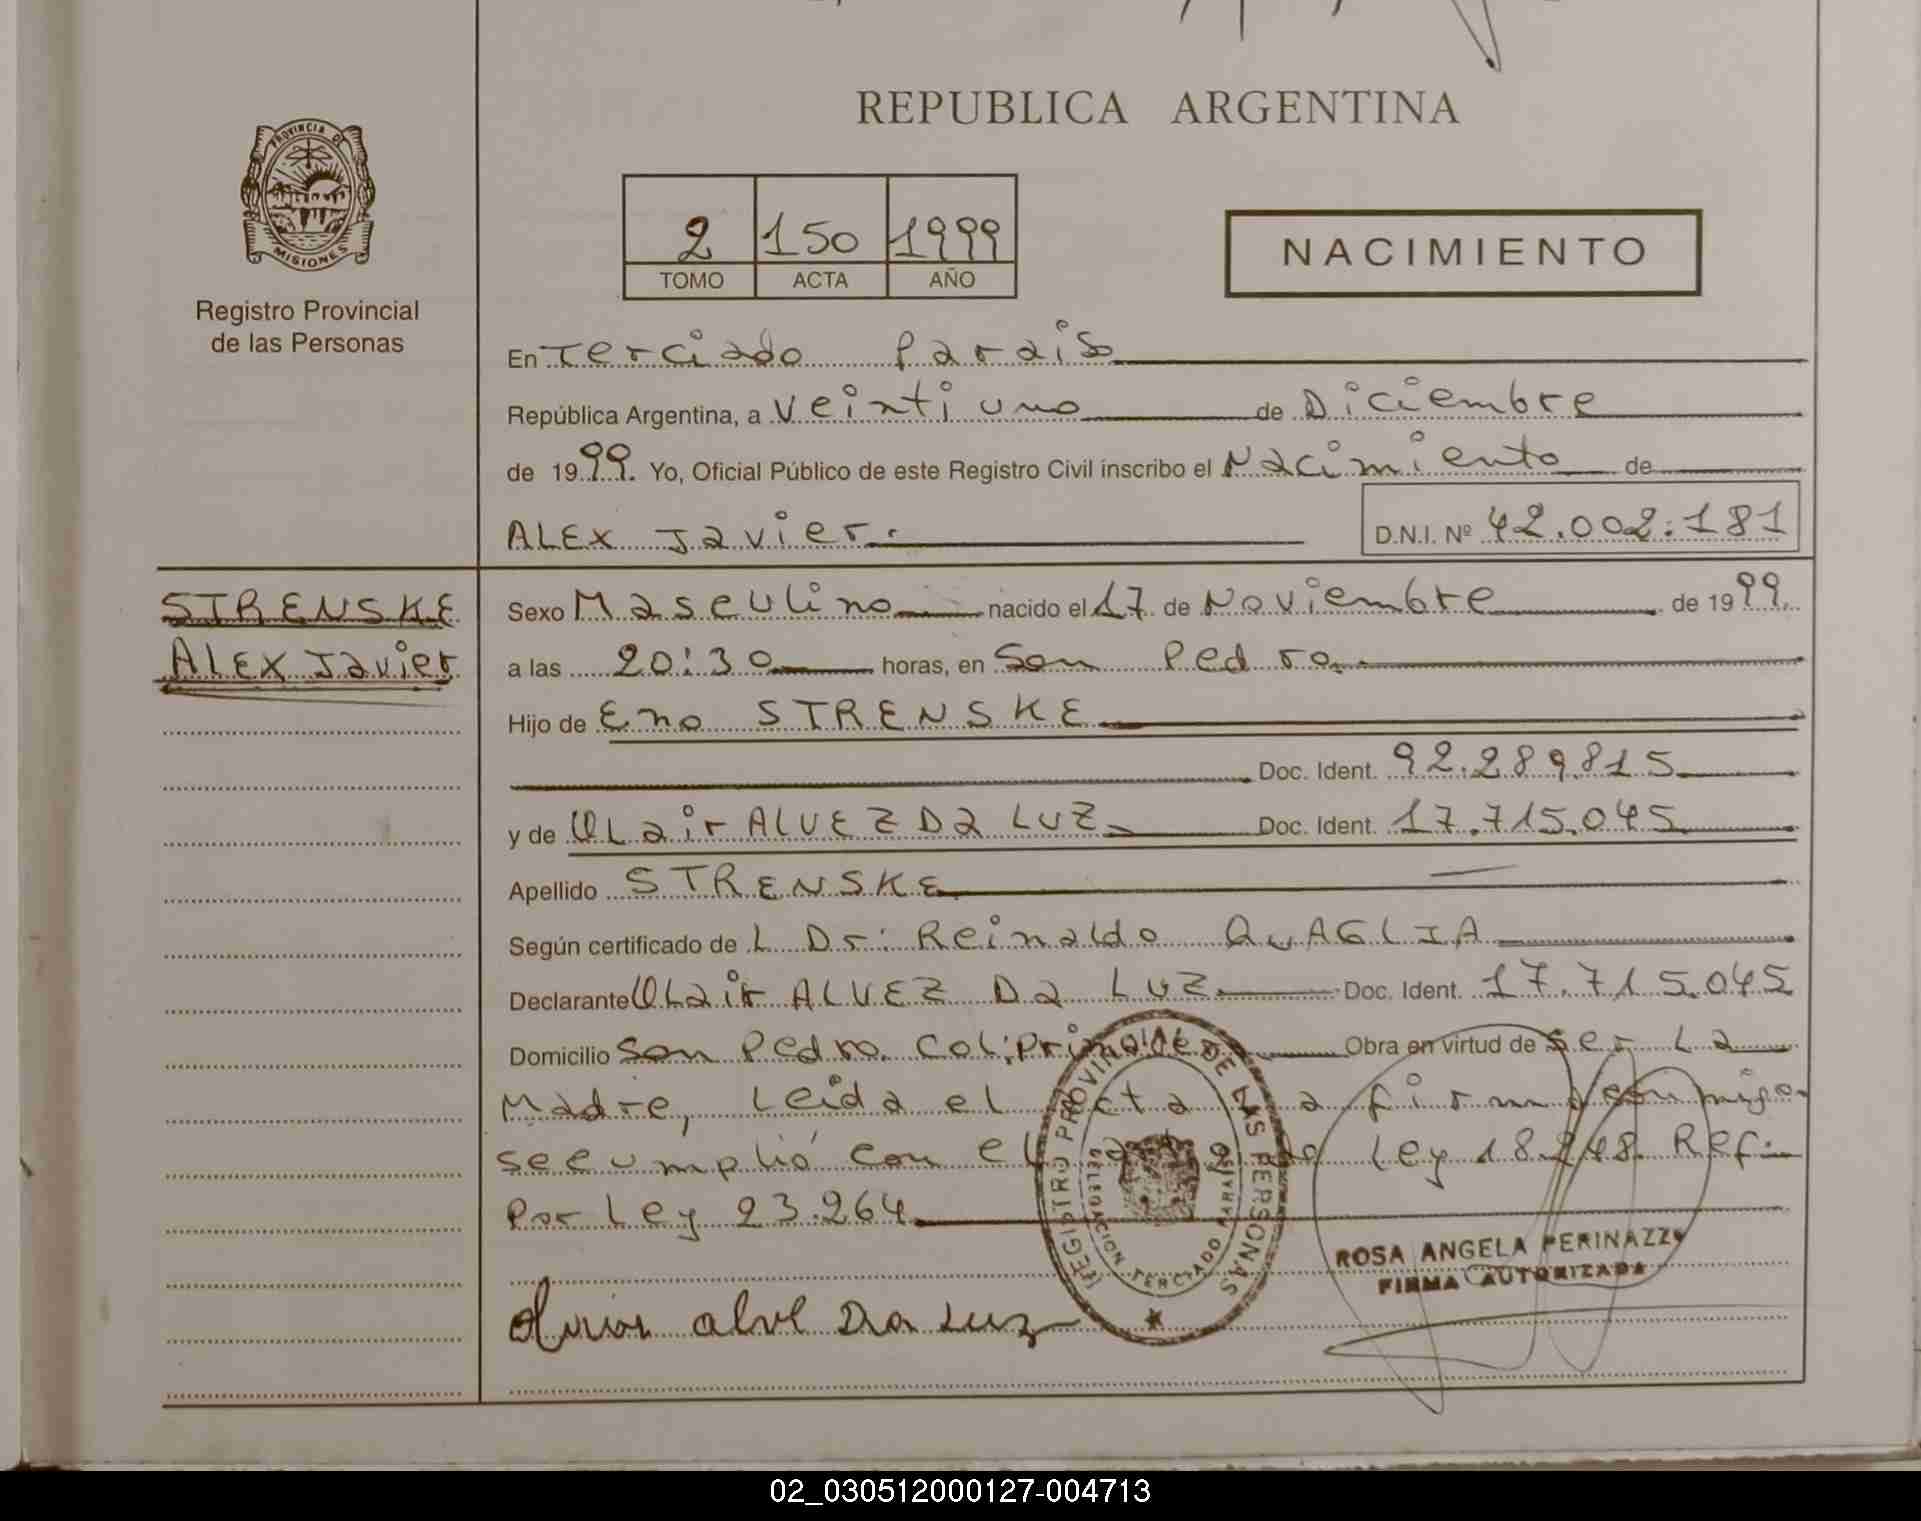 REPUBLICA ARGENTINA
PROVINCIA DE
MISIONES
Registro Provincial
de las Personas
2 150 1999
TOMO ACTA AÑO
NACIMIENTO
En Terciado Paraiso
República Argentina, a Veinti uno de Diciembre
de 1999. Yo, Oficial Público de este Registro Civil inscribo el Nacimiento de
ALEX Javier.
D.N.I. Nº 42.002.181
STRENSKE
ALEX Javier
Sexo Masculino nacido el 17 de Noviembre de 1999.
a las 20:30 horas, en San Pedro.
Hijo de Eno STRENSKE
Doc. Ident. 92.289.815
y de OLair ALVEZ Da LUZ Doc. Ident. 17.715.045
Apellido STRENSKE
Según certificado de L Dr: Reinaldo QuAGLIA
Declarante OLair ALVEZ Da LUZ. Doc. Ident. 17.715.045
Domicilio San Pedro. Col; Primavera Obra en virtud de Ser La
Madre, Leida el Acta La firma conmigo
se cumplió con el de Ley 18.248. Ref.
Por Ley 23.264
REGISTRO PROVINCIAL DE LAS PERSONAS
DELEGACION TERCIADO PARAISO
ROSA ANGELA PERINAZZO
FIRMA AUTORIZADA
alve Da Luz
02_030512000127-004713